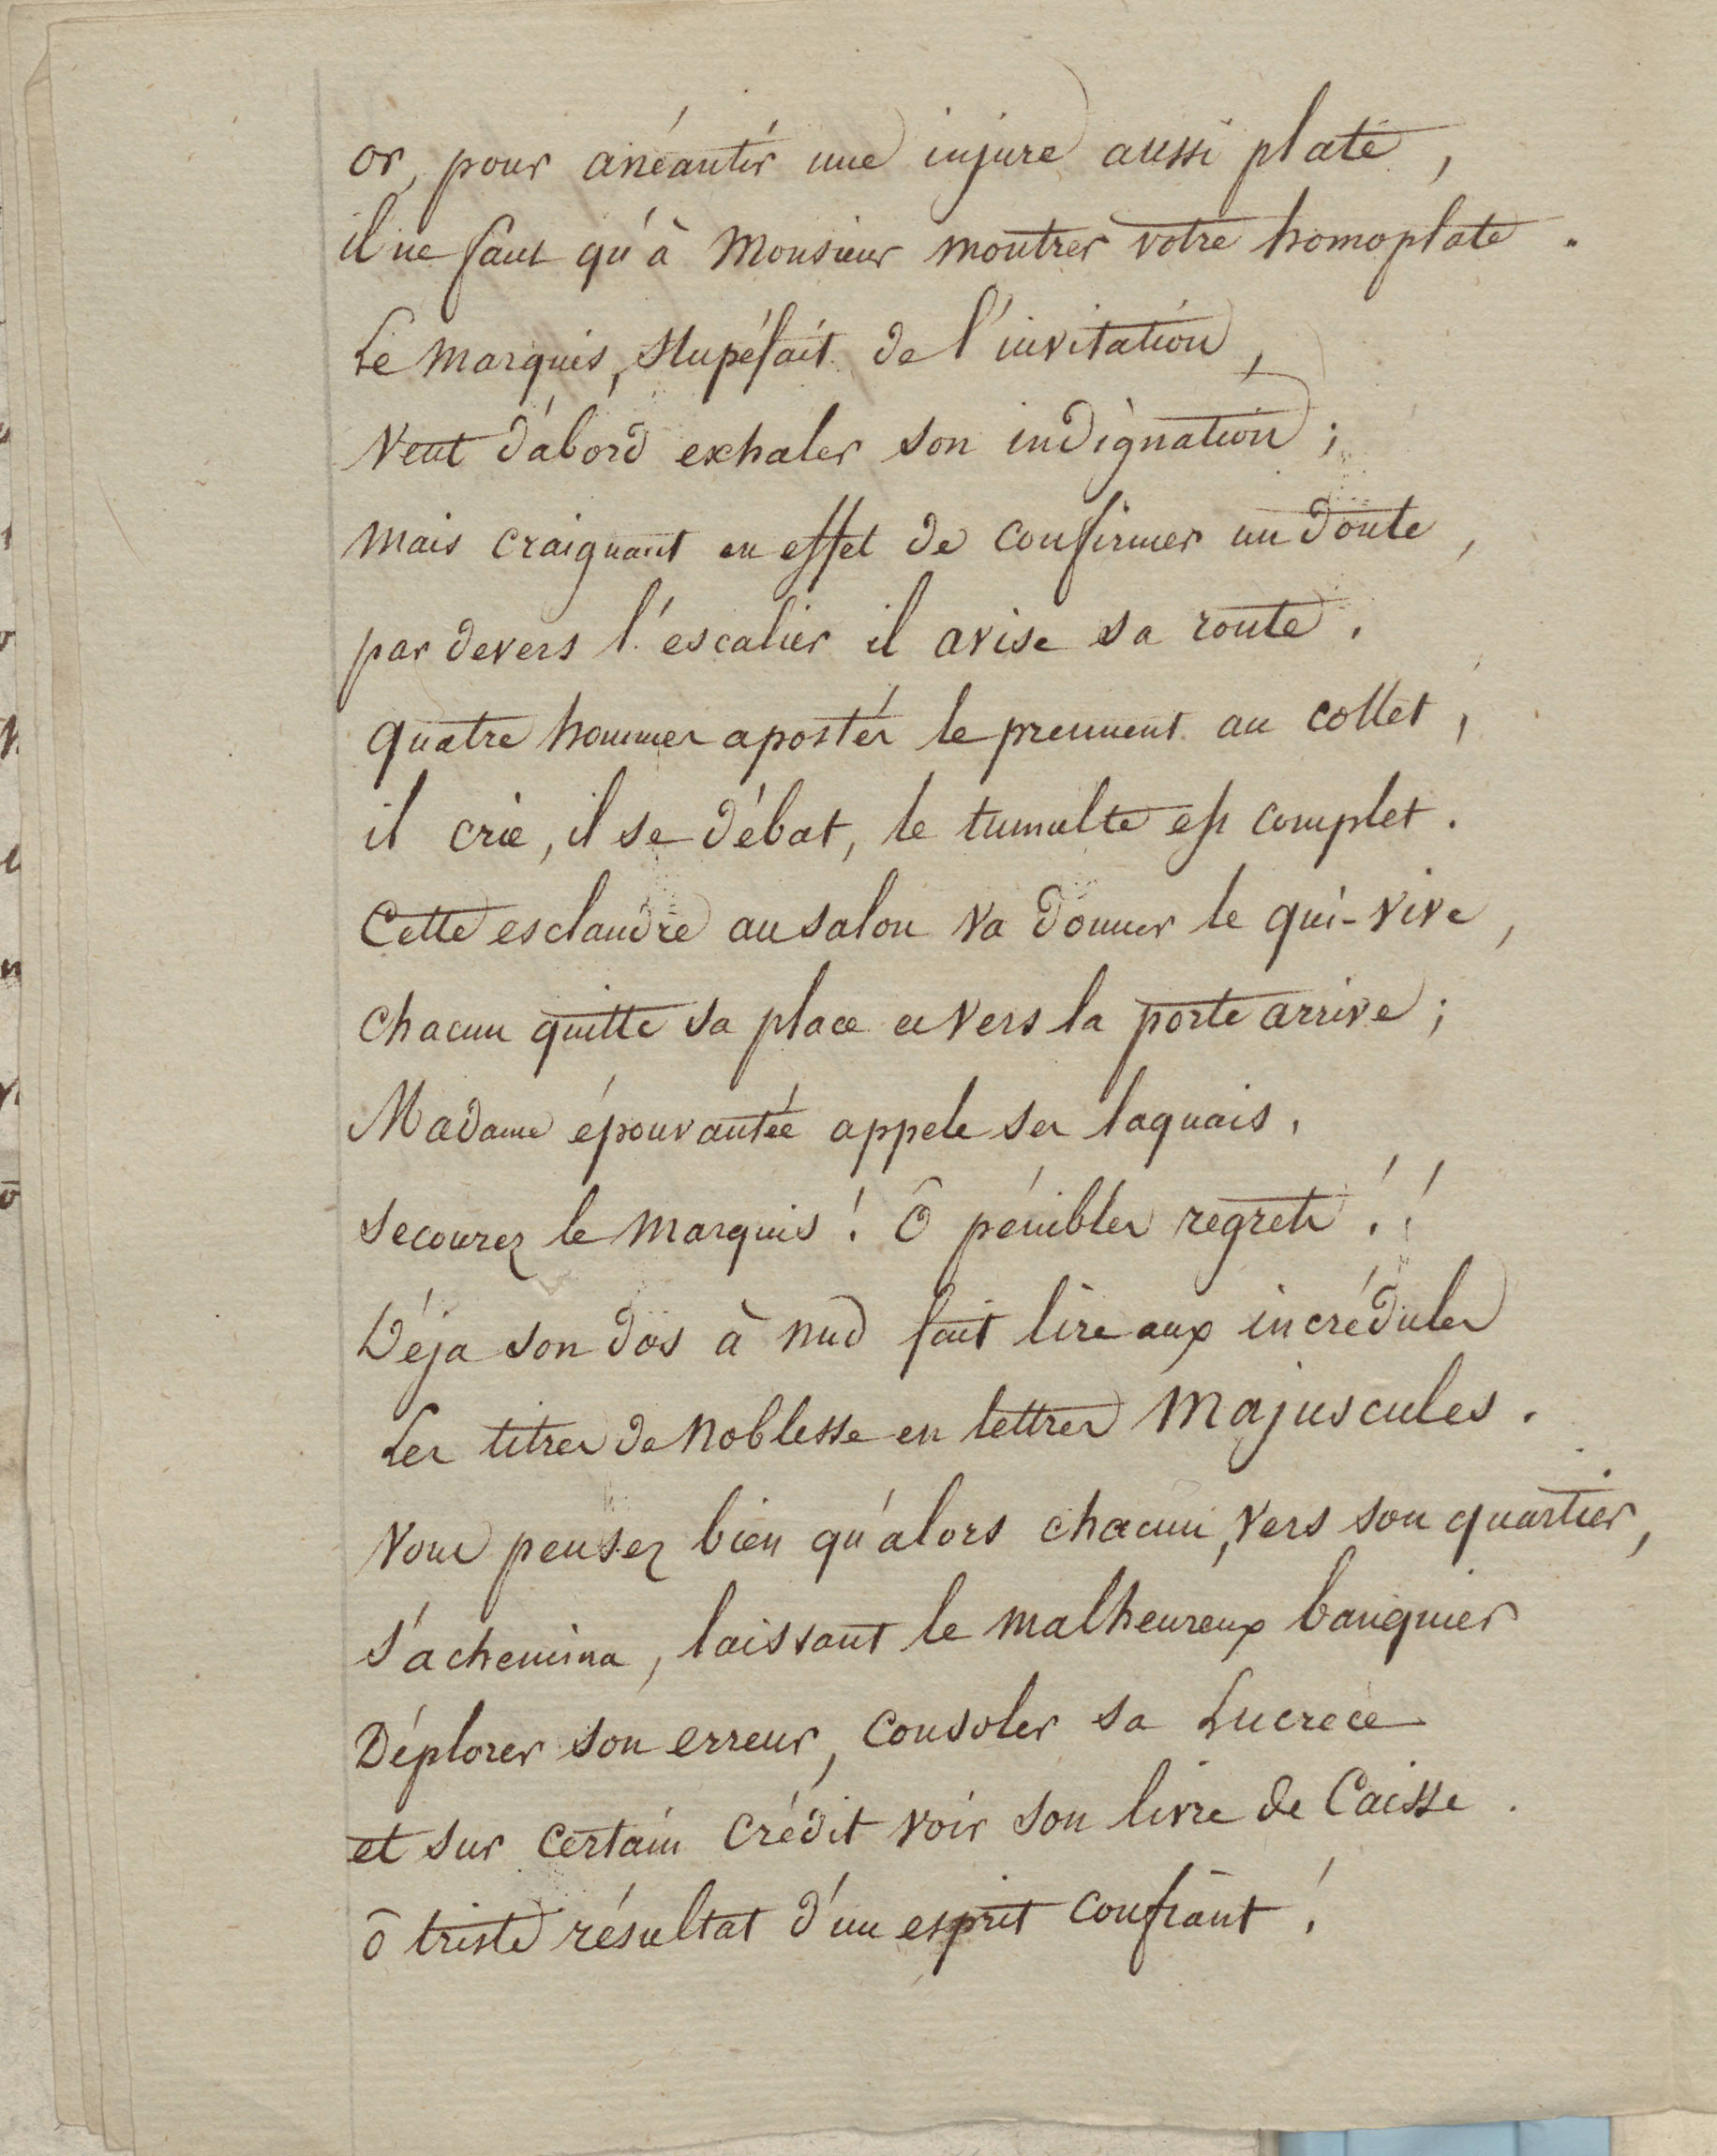 or, pour anéantir une injure aussi plate,
il ne faut qu'à Monsieur montrer votre homoplate.
Le Marquis, stupéfait de l'invitation,
Veut d'abord exhaler son indignation;
Mais craignant en effet de confirmer un doute,
par devers l'escalier il avise sa route.
quatre hommes apostés le prennent au collet,
il crie, il se débat, le tumulte est complet.
Cette esclandre au salon va donner le qui-vive,
chacun quitte sa place et vers la porte arrive;
Madame épouvantée appele ses laquais,
secourez le Marquis! Ô pénibles regrets!!
Déja son dos à nud fait lire aux incrédules
Les titres de Noblesse en lettres Majuscules.
Vous pensez bien qu'alors chacun, vers son quartier,
s'achemina, laissant le malheureux banquier
Déplorer son erreur, consoler sa Lucrece
et sur certain crédit voir son livre de Caisse.
ô triste résultat d'un esprit confiant!